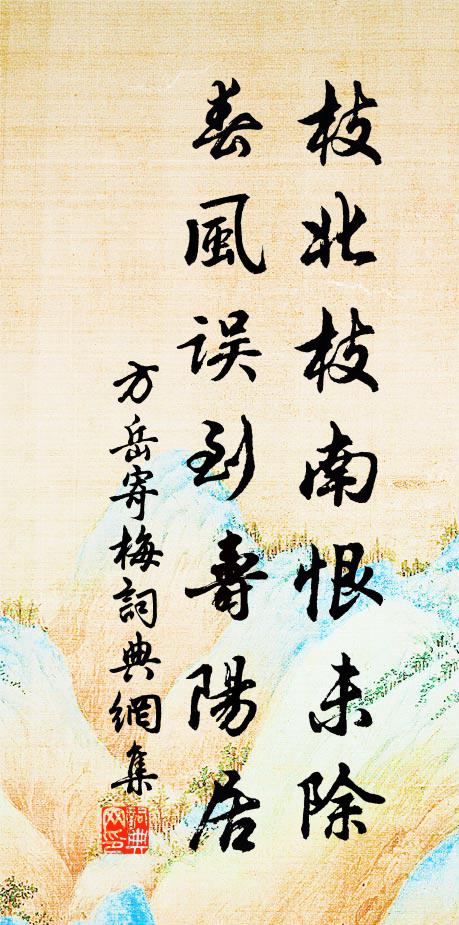 枝北枝南恨未除
春風误到壽陽居
方岳寄梅詞典網集
詞典网印